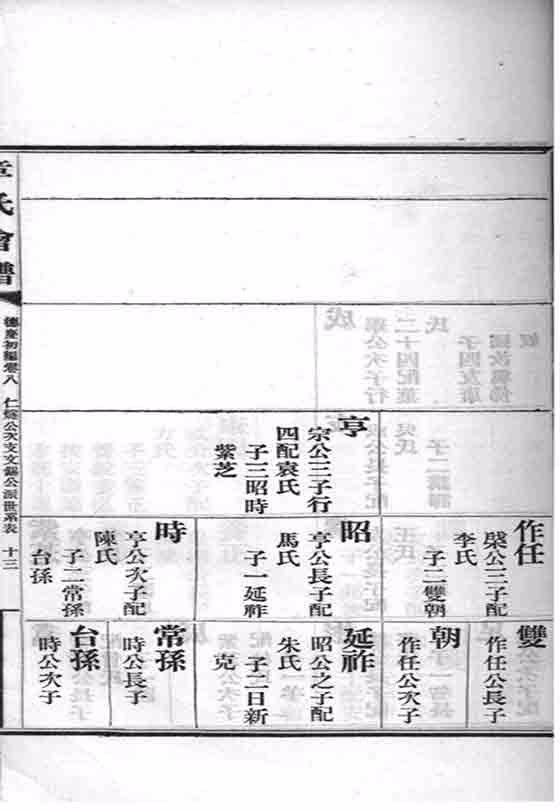 亨
宗公三子行
四配袁氏
子三昭時
紫芝
作任
殷公三子配
李氏
子二雙朝
昭
亨公長子配
馬氏
子一延祚
時
亨公次子配
陳氏
子二常孫
台孫
雙
作任公長子
朝
作任公次子
延祚
昭公之子配
朱氏
子二日新
克
常孫
時公長子
台孫
時公次子
章氏會譜
德慶初編卷八 仁公次支文錫公派世系表 十三